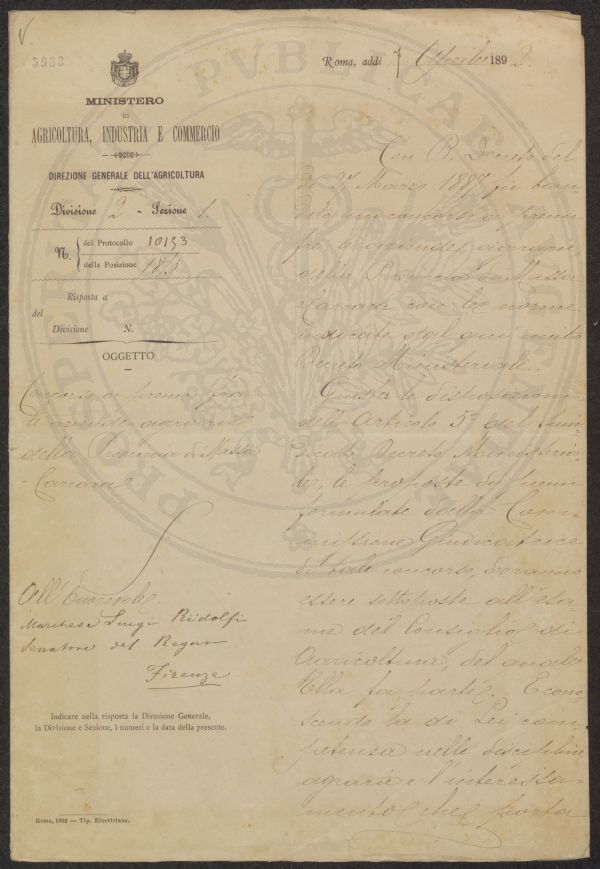 5983
Roma, addì 7 Aprile 1892.
MINISTERO
DI
AGRICOLTURA, INDUSTRIA E COMMERCIO
DIREZIONE GENERALE DELL'AGRICOLTURA
Divisione 2 - Sezione 1.
N. del Protocollo 10193
della Posizione
Risposta a
del
Divisione N.
OGGETTO
Concorso a premi fra
le aziende agrarie
della Provincia di Massa
-Carrara
All'Onorevole
Marchese Luigi Ridolfi
Senatore del Regno
Firenze
Indicare nella risposta la Direzione Generale,
la Divisione e Sezione, i numeri e la data della presente.
Roma, 1892 — Tip. Elzeviriana.
Con R. Decreto del
dì 27 Marzo 1887 fu ban-
dito un concorso a premi
fra le aziende agrarie
della Provincia di Massa
Carrara con le norme
indicate dal qui unito
Decreto Ministeriale.
Giusta le disposizioni
dell'Articolo 5º del sun-
dicato Decreto Ministeria-
le, le proposte di premi
formulate dalla Com-
missione Giudicatrice
di tale concorso, dovranno
essere sottoposte all'esa-
me del Consiglio di
Agricoltura, del quale
Ella fa parte. E cono-
scendo la di Lei com-
petenza nelle discipline
agrarie e l'interessa-
mento che porta
PROSPERITATI PVBLICAE